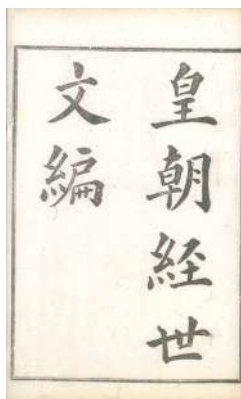 皇朝経世
文編